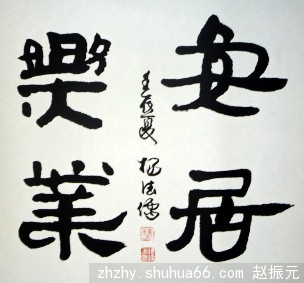 安居
樂業
壬辰夏
zhzhy.shuhua66.com 赵振元